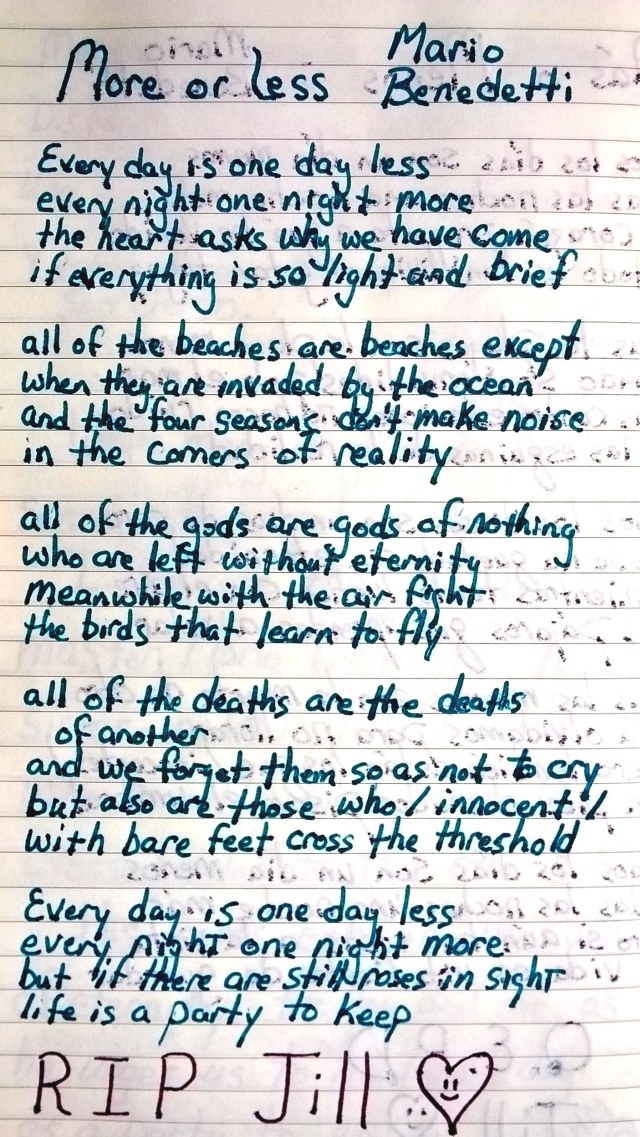 More or Less
Mario
Benedetti
Every day is one day less
every night one night more
the heart asks why we have come
if everything is so light and brief
all of the beaches are beaches except
when they are invaded by the ocean
and the four seasons don't make noise
in the corners of reality
all of the gods are gods of nothing
who are left without eternity
meanwhile with the air fight
the birds that learn to fly
all of the deaths are the deaths
of another
and we forget them so as not to cry
but also are those who / innocent /
with bare feet cross the threshold
Every day is one day less
every night one night more
but if there are still roses in sight
life is a party to keep
RIP Jill